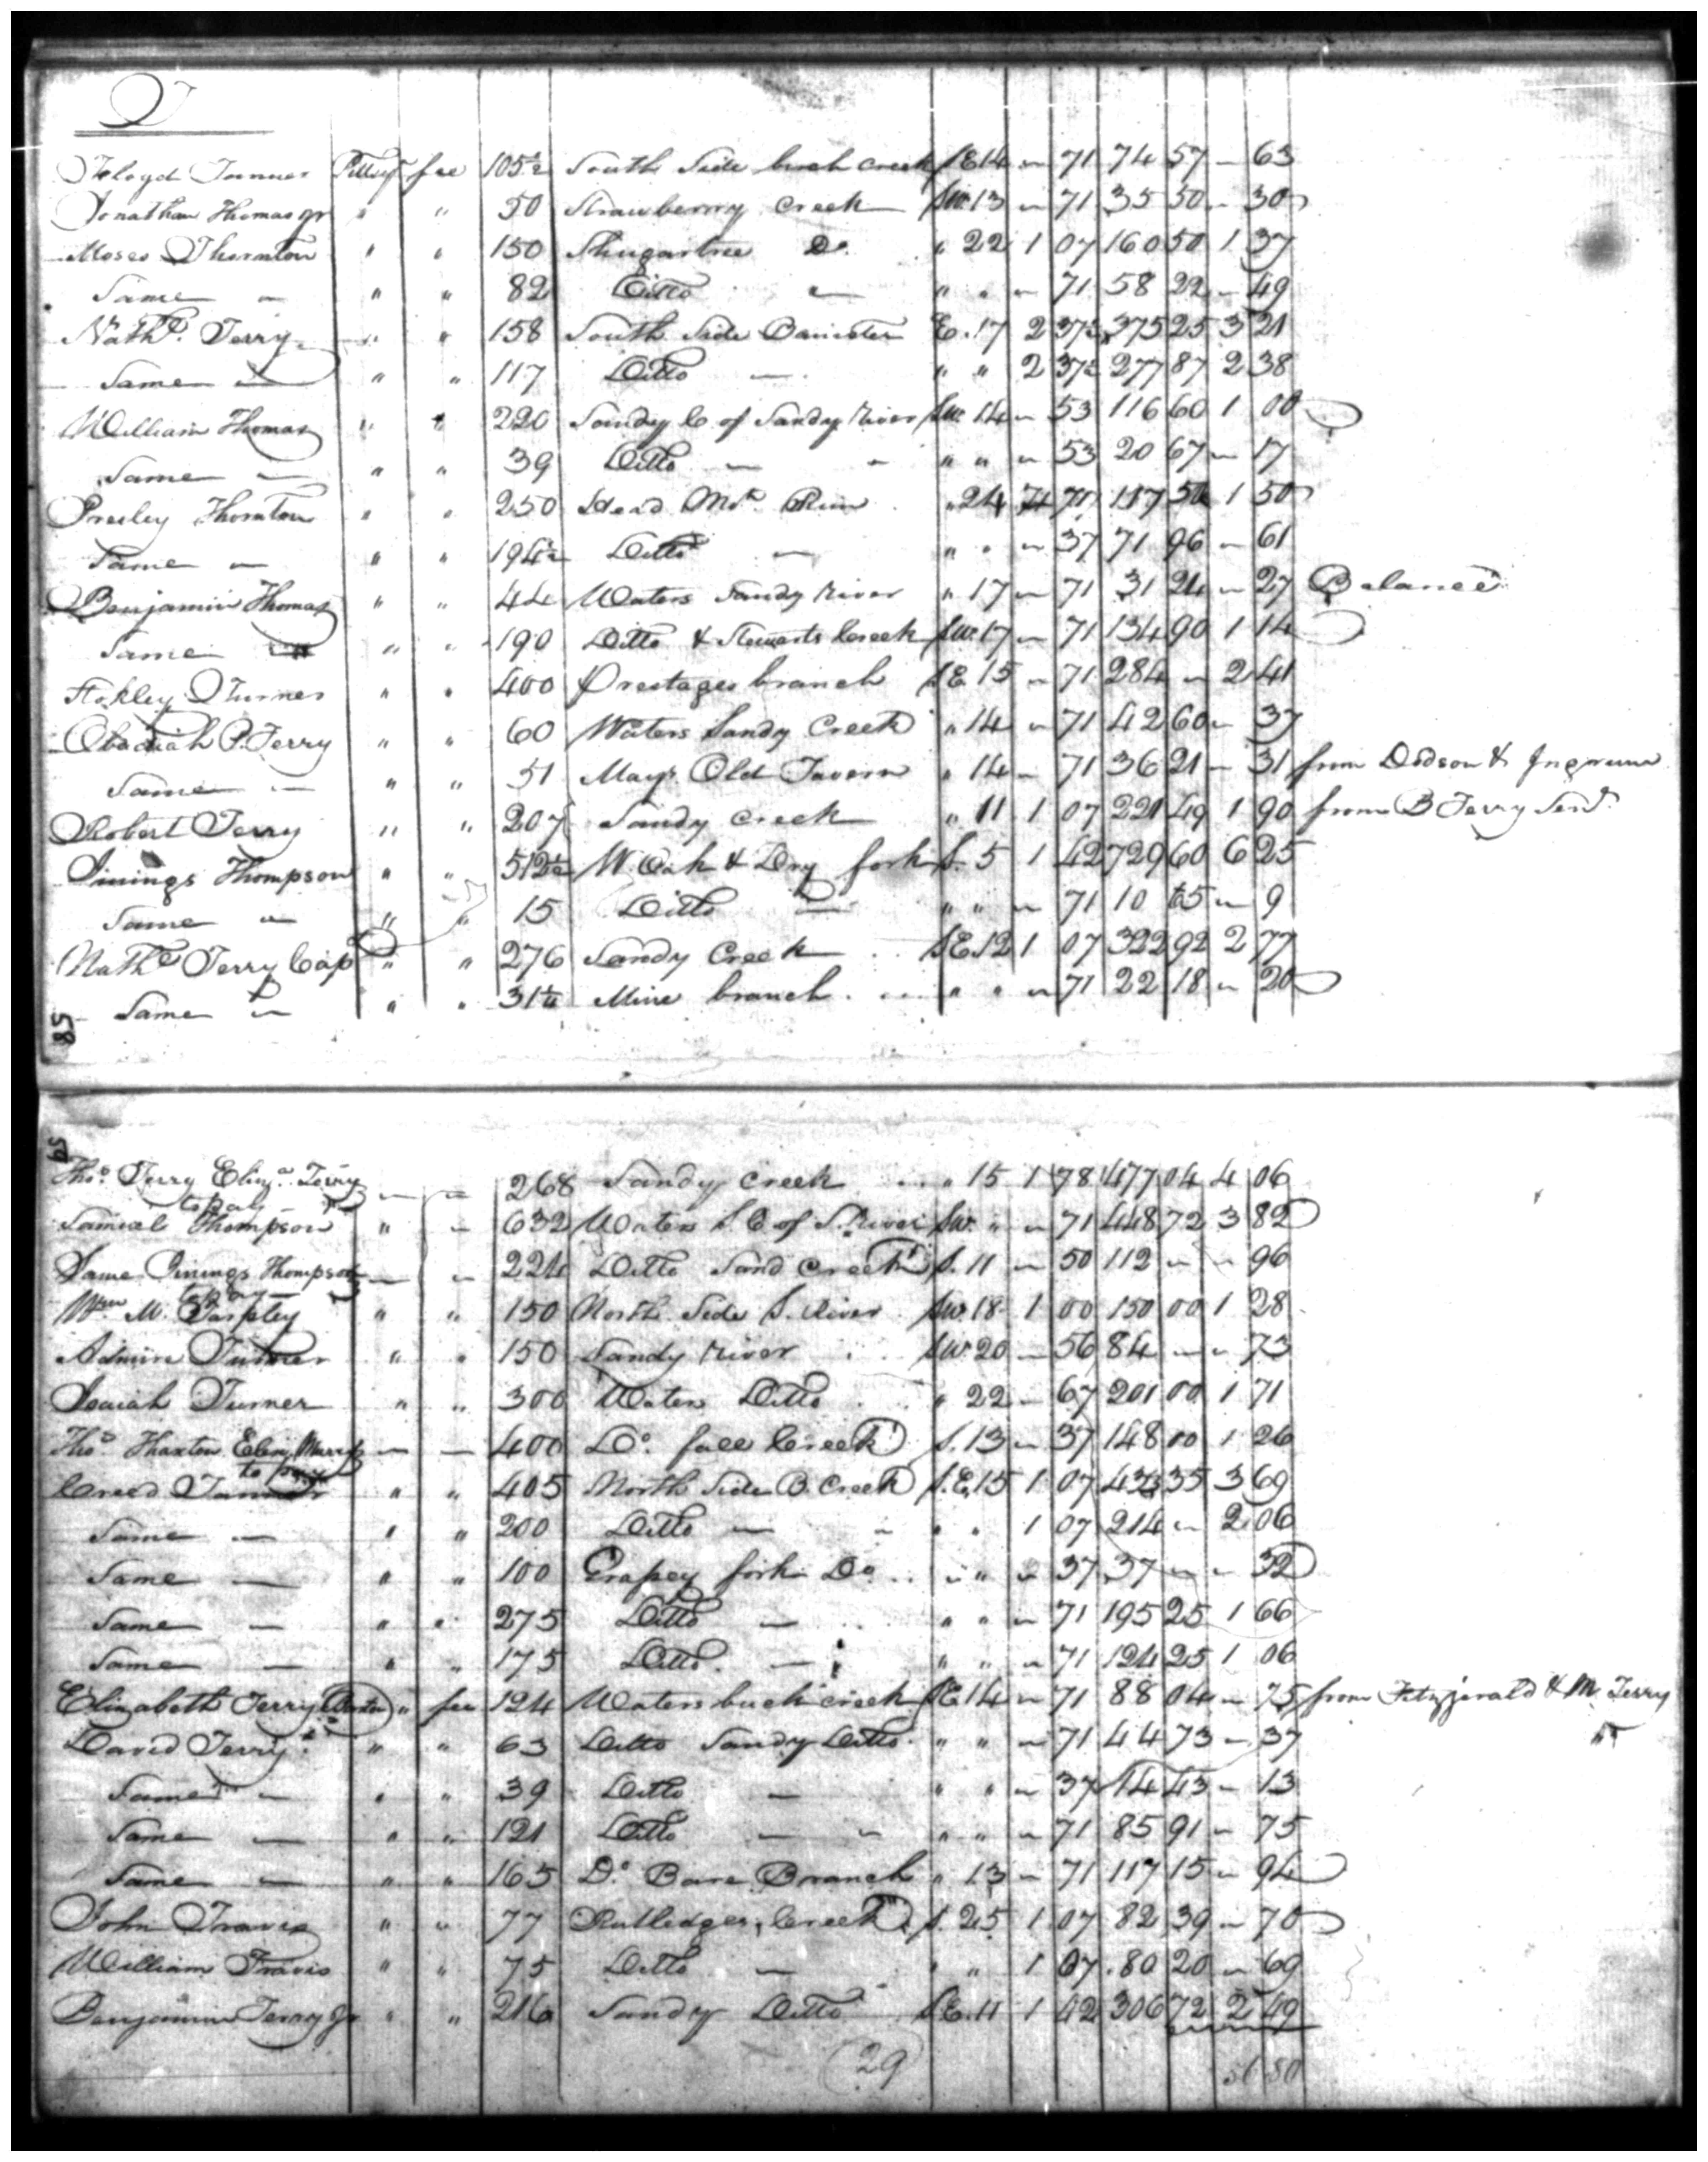 T
Floyd Tanner Pittsyl fee 105½ South Side birch Creek SE 14 " 71 74 57 " 63
Jonathan Thomas jr " " 50 Strawberry Creek SW 13 " 71 35 50 " 30
Moses Thornton " " 150 Shugartree Do. " 22 1 07 160 50 1 37
Same " " " 82 Ditto " " " " 71 58 22 " 49
Nathl. Terry " " 158 South Side Banister E. 17 2 37½ 375 25 3 21
Same " " " 117 Ditto — " " 2 37½ 277 87 2 38
William Thomas " " 220 Sandy C of Sandy River SW. 14 " 53 116 60 1 00
Same — " " 39 Ditto — " " " " 53 20 67 " 17
Presley Thornton " " 250 Head Mo. Run " 24 71 117 50 1 50
Same " " " 194½ Ditto — " " " 37 71 96 " 61
Benjamin Thomas " " 44 Waters Sandy River " 17 " 71 31 24 " 27 Balance
Same " " 190 Ditto & Stewarts Creek SW. 17 " 71 134 90 1 14
Stokley Turner " " 400 Prestages branch SE. 15 " 71 284 " 2 41
Obadiah P. Terry " " 60 Waters Sandy Creek " 14 " 71 42 60 " 37
Same — " " 51 Mays Old Tavern " 14 " 71 36 21 " 31 from Dodson & Ingram
Robert Terry " " 207 Sandy Creek " 11 1 07 221 49 1 90 from B Terry Senr.
Jinings Thompson " " 512½ W. Oak & Dry fork S. 5 1 42 729 60 6 25
Same " " " 15 Ditto — " " " 71 10 65 " 9
Nathl. Terry Cap " " 276 Sandy Creek SE. 12 1 07 322 92 2 77
Same " " " 31¼ Mine branch " " " 71 22 18 " 20
58
59
Thos. Terry Eliza. Terry — — 268 Sandy Creek " 15 1 78 477 04 4 06
to pay
Samuel Thompson " " 632 Waters S. C of S. River SW. " " 71 448 72 3 82
Same Jinings Thompson — " 224 Ditto Sand Creek S. 11 " 50 112 " " 96
to pay
Wm. M. Tarpley " " 150 North Side S. River SW. 18 1 00 150 00 1 28
Admire Turner " " 150 Sandy River SW. 20 — 56 84 — " 73
Isaiah Turner " " 300 Waters Ditto " 22 — 67 201 00 1 71
Thos. Thaxton — — 400 Do. fall Creek S. 13 " 37 148 00 1 26
to pay
Creed Tanner " " 405 North Side B. Creek S.E. 15 1 07 433 35 3 69
Same — " " 200 Ditto — " " " 1 07 214 " 2 06
Same — " " 100 Grapey fork Do. " " " 37 37 " " 32
Same — " " 275 Ditto — " " " 71 195 25 1 66
Same — " " 175 Ditto. — " " " 71 124 25 1 06
Elizabeth Terry " fee 124 Waters buck creek SE 14 " 71 88 04 " 75 from Fitzgerald & M. Terry
David Terry " " 63 Ditto Sandy Ditto " " " 71 44 73 " 37
Same " " " 39 Ditto — " " " 37 14 43 " 13
Same — " " 121 Ditto — " " " " 71 85 91 " 75
Same — " " 165 Do. Bare Branch " 13 " 71 117 15 " 94
John Travis " " 77 Rutledges Creek S. 25 1 07 82 39 " 70
William Travis " " 75 Ditto — " " 1 07 80 20 " 69
Benjamin Terry Jr " " 216 Sandy Ditto SE. 11 1 42 306 72 2 49
(29) 56 80